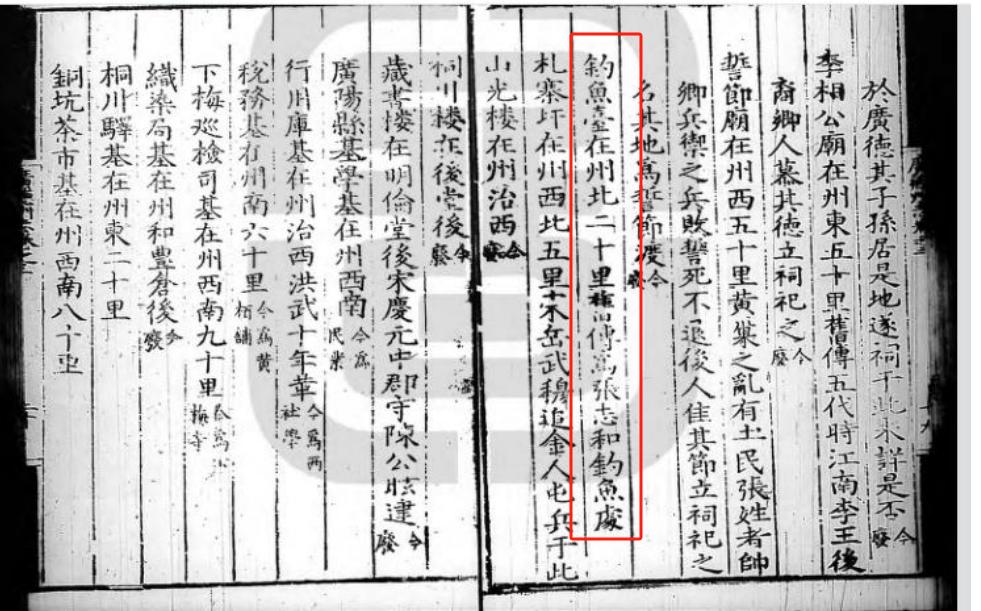 於廣德其子孫居是地遂祠于此未詳是否今廢
李相公廟在州東五十里舊傳五代時江南李王後
裔鄉人慕其德立祠祀之今廢
誓節廟在州西五十里黃巢之亂有土民張姓者帥
鄉兵禦之兵敗誓死不退後人佳其節立祠祀之
名其地為誓節渡今廢
釣魚臺在州北二十里舊傳為張志和釣魚處
札寨圩在州西北五里宋岳武穆追金人屯兵于此
山光楼在州治西今廢
桐川楼在後堂後今廢
藏書楼在明倫堂後宋慶元中郡守陳公建今廢
廣陽縣基學基在州西南今為民業
行用庫基在州治西洪武十年革今為西社學
稅務基在州南六十里今為黃栢舖
下梅巡檢司基在州西南九十里今為梅寺
織染局基在州和豊倉後今廢
桐川驛基在州東二十里
銅坑茶市基在州西南八十里